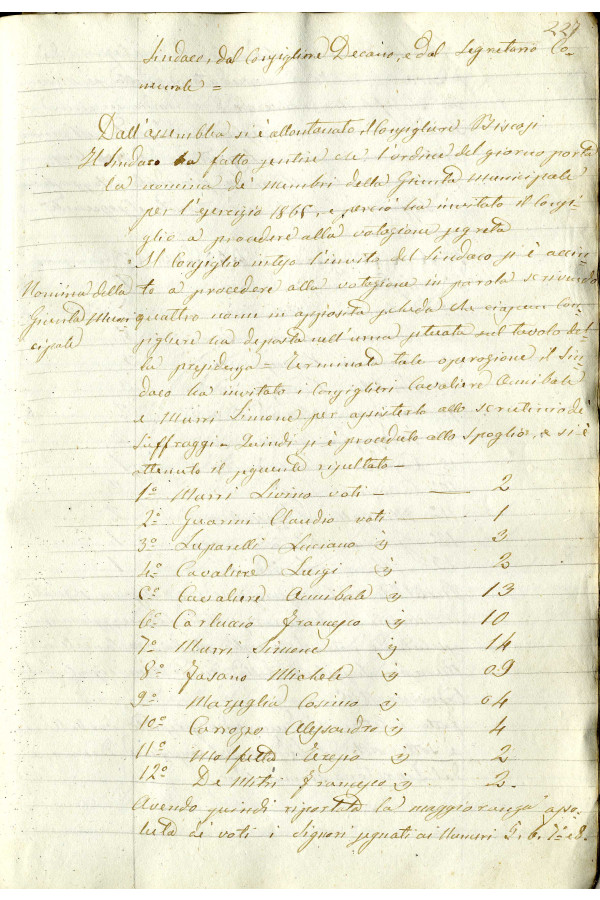 227
Sindaco, dal Consigliere Decano, e dal Segretario Co-
munale =
Dall'assemblea si è allontanato il Consigliere Biscosi
Il Sindaco ha fatto sentire che l'ordine del giorno porta
la nomina de' membri della Giunta Municipale
per l'esercizio 1865, e perciò ha invitato il Consi-
glio a procedere alla votazione segreta
Il Consiglio inteso l'invito del Sindaco si è accin-
to a procedere alla votazione in parola scrivendo
Nomina della
Giunta Muni
cipale
quattro nomi in apposita scheda che ciascun Con-
sigliere ha deposta nell'urna situata sul tavolo del-
la presidenza = Terminata tale operazione il Sin-
daco ha invitato i Consiglieri Cavaliere Annibale
e Murri Simone per assisterlo allo scrutinio de'
suffraggi - Quindi si è proceduto allo spoglio, e si è
ottenuto il seguente risultato -
1º Murri Livino voti - 2
2º Guarini Claudio voti - 1
3º Luparelli Luciano ij 3
4º Cavaliere Luigi ij 2
5º Cavaliere Annibale ij 13
6º Carluccio Francesco ij 10
7º Murri Simone ij 14
8º Fasano Michele ij 09
9º Marseglia Cosimo ij 04
10º Carrozzo Alessandro ij 4
11º Molfetta ij 2
12º De Mitri Francesco ij 2.
Avendo quindi riportata la maggioranza asso-
luta de' voti i Signori segnati ai Numeri 5. 6. 7. e 8.